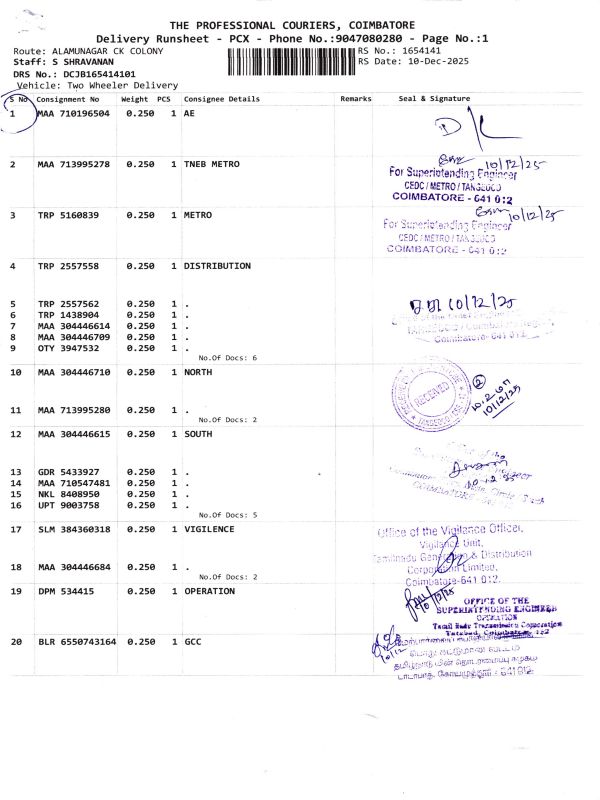 THE PROFESSIONAL COURIERS, COIMBATORE
Delivery Runsheet - PCX - Phone No.:9047080280 - Page No.:1
Route: ALAMUNAGAR CK COLONY RS No.: 1654141
Staff: S SHRAVANAN RS Date: 10-Dec-2025
DRS No.: DCJB165414101
Vehicle: Two Wheeler Delivery
S No Consignment No Weight PCS Consignee Details Remarks Seal & Signature
1 MAA 710196504 0.250 1 AE
2 MAA 713995278 0.250 1 TNEB METRO
10/12/25
For Superintending Engineer
CEDC/METRO/TANGEDCO
COIMBATORE - 641 012
3 TRP 5160839 0.250 1 METRO
10/12/25
For Superintending Engineer
CEDC/METRO/TANGEDCO
COIMBATORE - 641 012
4 TRP 2557558 0.250 1 DISTRIBUTION
5 TRP 2557562 0.250 1 .
10/12/25
6 TRP 1438904 0.250 1 .
7 MAA 304446614 0.250 1 .
8 MAA 304446709 0.250 1 .
Coimbatore- 641 012
9 OTY 3947532 0.250 1 .
No.Of Docs: 6
10 MAA 304446710 0.250 1 NORTH
RECEIVED
2
10/12/25
11 MAA 713995280 0.250 1 .
No.Of Docs: 2
12 MAA 304446615 0.250 1 SOUTH
Office of the
13 GDR 5433927 0.250 1 .
14 MAA 710547481 0.250 1 .
15 NKL 8408950 0.250 1 .
16 UPT 9003758 0.250 1 .
No.Of Docs: 5
17 SLM 384360318 0.250 1 VIGILENCE
Office of the Vigilance Officer,
Vigilance Unit,
Tamilnadu Generation & Distribution
Corporation Limited,
Coimbatore-641 012.
18 MAA 304446684 0.250 1 .
No.Of Docs: 2
19 DPM 534415 0.250 1 OPERATION
10/12/25
OFFICE OF THE
SUPERINTENDING ENGINEER
OPERATION
Tamil Nadu Transmission Corporation
Tatabad, Coimbatore
20 BLR 6550743164 0.250 1 GCC
10/12
தமிழ்நாடு மின்
டாடாபாத், கோயமுத்தூர் - 641 012